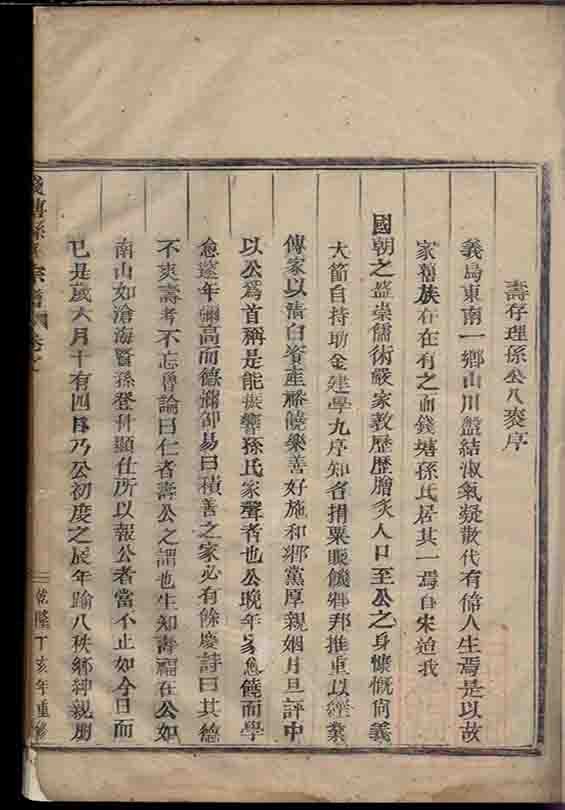 壽存理孫公八袠序
義烏東南一鄉山川盤結淑氣凝散代有偉人生焉是以故
家舊族在在有之而錢塘孫氏居其一焉自宋迨我
國朝之盛崇儒術嚴家教歷歷膾炙人口至公之身慷慨尚義
大節自持助金建學九序知名捐粟賑饑鄉邦推重以經業
傳家以清白資產裕饒樂善好施和鄉黨厚親姻月旦評中
以公爲首稱是能振響孫氏家聲者也公晚年家愈饒而學
愈邃年彌高而德彌邵易曰積善之家必有餘慶詩曰其德
不爽壽考不忘魯論曰仁者壽公之謂也生知壽福在公如
南山如滄海賢孫登科顯仕所以報公者當不止如今日而
已是歲六月十有四日乃公初度之辰年踰八秩鄉紳親朋
孫氏宗譜
乾隆丁亥年重修